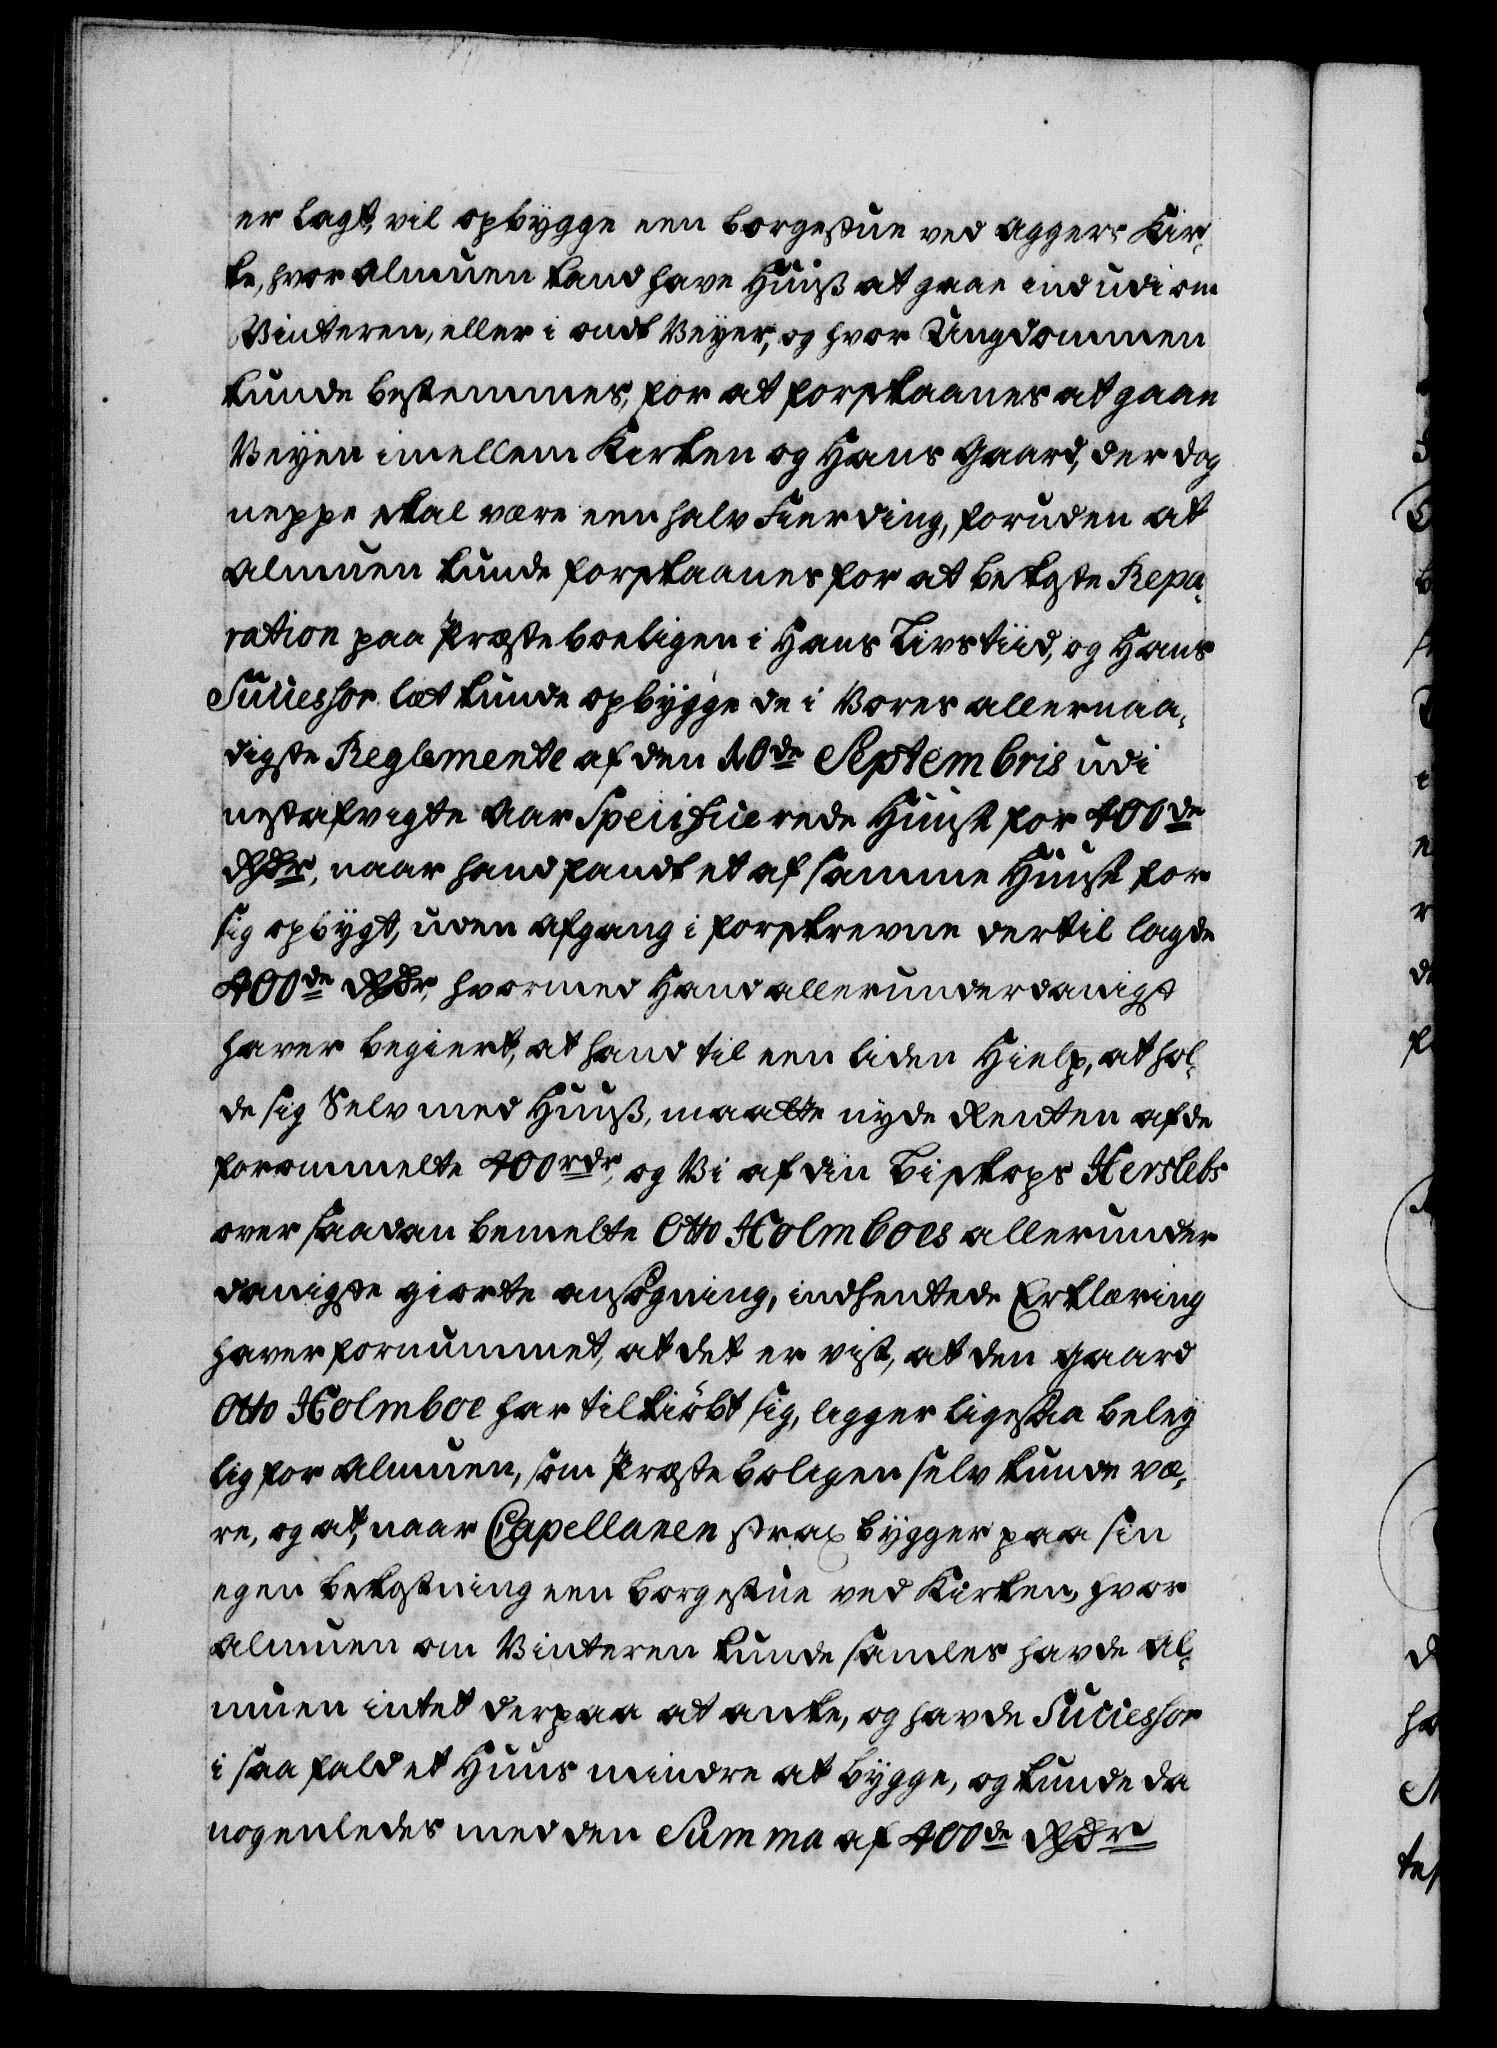 er lagt, vil opbygge een borgestue ved Aggers Kir¬
ke, hvor Almuen kand have Huus at gaae ind udi om
Vinteren, eller i ondt Veyer, og hvor Ungdommen
kunde bestemmes, for at forskaanes at gaae
Veyen imellem Kirken og Hans Gaard, der dog
neppe skal være een halv Fierding, foruden at
Almuen kunde forskaanes for at bekoste Repa¬
ration paa Præsteboeligen i Hans Livs tiid, og Hans
Successor let kunde opbygge de i Vores allernaa¬
digste Reglemente af den 20de Septembris udi
nestafvigte Aar Specificerede Huuse for 400de
Rdr, naar hand fandt et af samme Huuse for
sig opbygt, uden afgang i forskrevne dertil lagde
400de Rdr, hvormed Hand allerunderdanigst
haver begiert, at hand til een liden Hielp, at hol¬
de sig Selv med Huus, maatte nyde Renten af de
forommelte 400rdr, og Vi af din Biskops Herslebs
over saadan bemelte Otto Holmboes allerunder
danigste giorte ansøgning, indhentede Erklæring
haver fornummet, at det er vist, at den gaard
Otto Holmboe har tilkiöbt sig, ligger ligesaa beley
lig for Almuen, som Præsteboligen selv kunde væ¬
re, og at, naar Capellanen strax bygger paa sin
egen bekostning een borgestue ved Kirken, hvor
Almuen om Vinteren kunde samles havde Al¬
muen intet derpaa at anke, og havde Successor
i saa fald et Huus mindre at bygge, og kunde da
nogenledes med den Summa af 400de Rdr